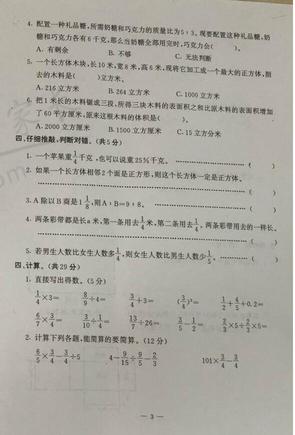 4. 配置一种礼品糖,所需奶糖和巧克力的质量比为5:3,现要配置这种礼品糖,奶
糖和巧克力各有6千克,那么当奶糖全部用完时,巧克力会( )。
A. 有剩余 B. 不够 C. 无法判断
5. 一个长方体木块,长10米,宽8米,高6米,现将它加工成一个最大的正方体,削
去的木料是( )立方米。
A. 216立方米 B. 264立方米 C. 1000立方米
6. 把1米长的木料锯成三段,所得三块木料的表面积之和比原木料的表面积增加
了60平方厘米,原来这根木料的体积是( )。
A. 2000立方厘米 B. 1500立方厘米 C. 15立方分米
四、仔细推敲,判断对错。(共5分)
1. 一个苹果重1/4千克,也可以说重25%千克。 ( )
2. 如果一个长方体相邻2个面是正方形,则这个长方体一定是正方体。
( )
3. A除以B商是1 1/8,则A:B=9:8。 ( )
4. 两条彩带都是长a米,第一条用去1/4米,第二条用去1/4,两条彩带用去的一样长。
( )
5. 若男生人数比女生人数多1/4,则女生人数比男生人数少1/5。 ( )
四、计算。(共29分)
1. 直接写出得数。(5分)
1/4×3= 8/9÷4= 3/4+3= (3/4)³= 1/2+4/5+0.2=
6/7×3/4= 3/10÷1/4= 13/7÷26= 3/5-1/2= 2/3×5÷2/3×5=
2. 计算下列各题,能简算的要简算。(12分)
6/5×3/4-3/4÷5 4-9/15÷9/5-2/3 101×3/4-3/4
— 3 —